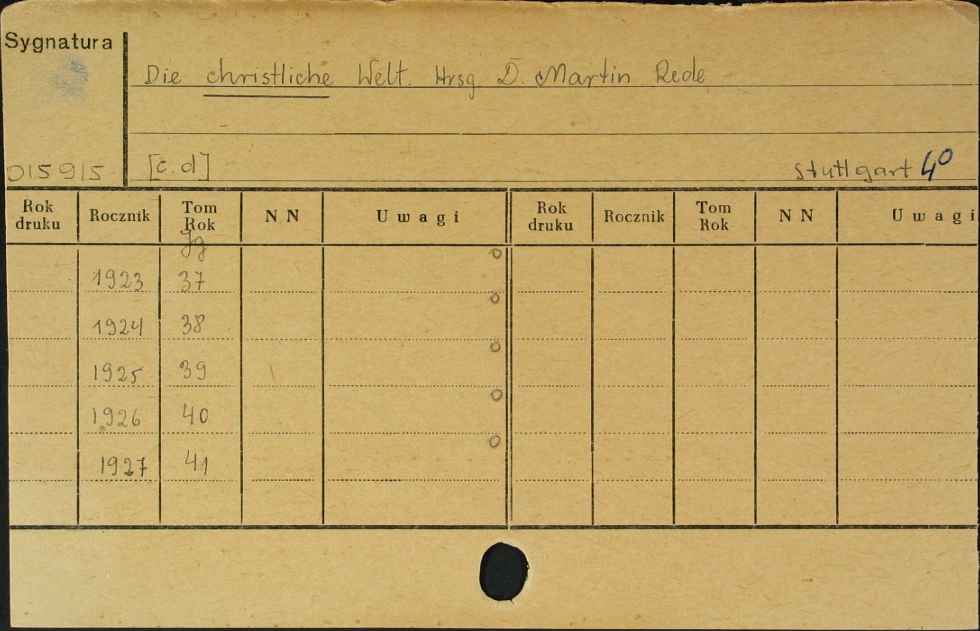 Sygnatura
Die christliche Welt. Hrsg D. Martin Rede
015915 [c.d] Stuttgart 4⁰
Rok druku Rocznik Tom Rok NN Uwagi Rok druku Rocznik Tom Rok NN Uwagi
Jg
1923 37
1924 38
1925 39
1926 40
1927 41